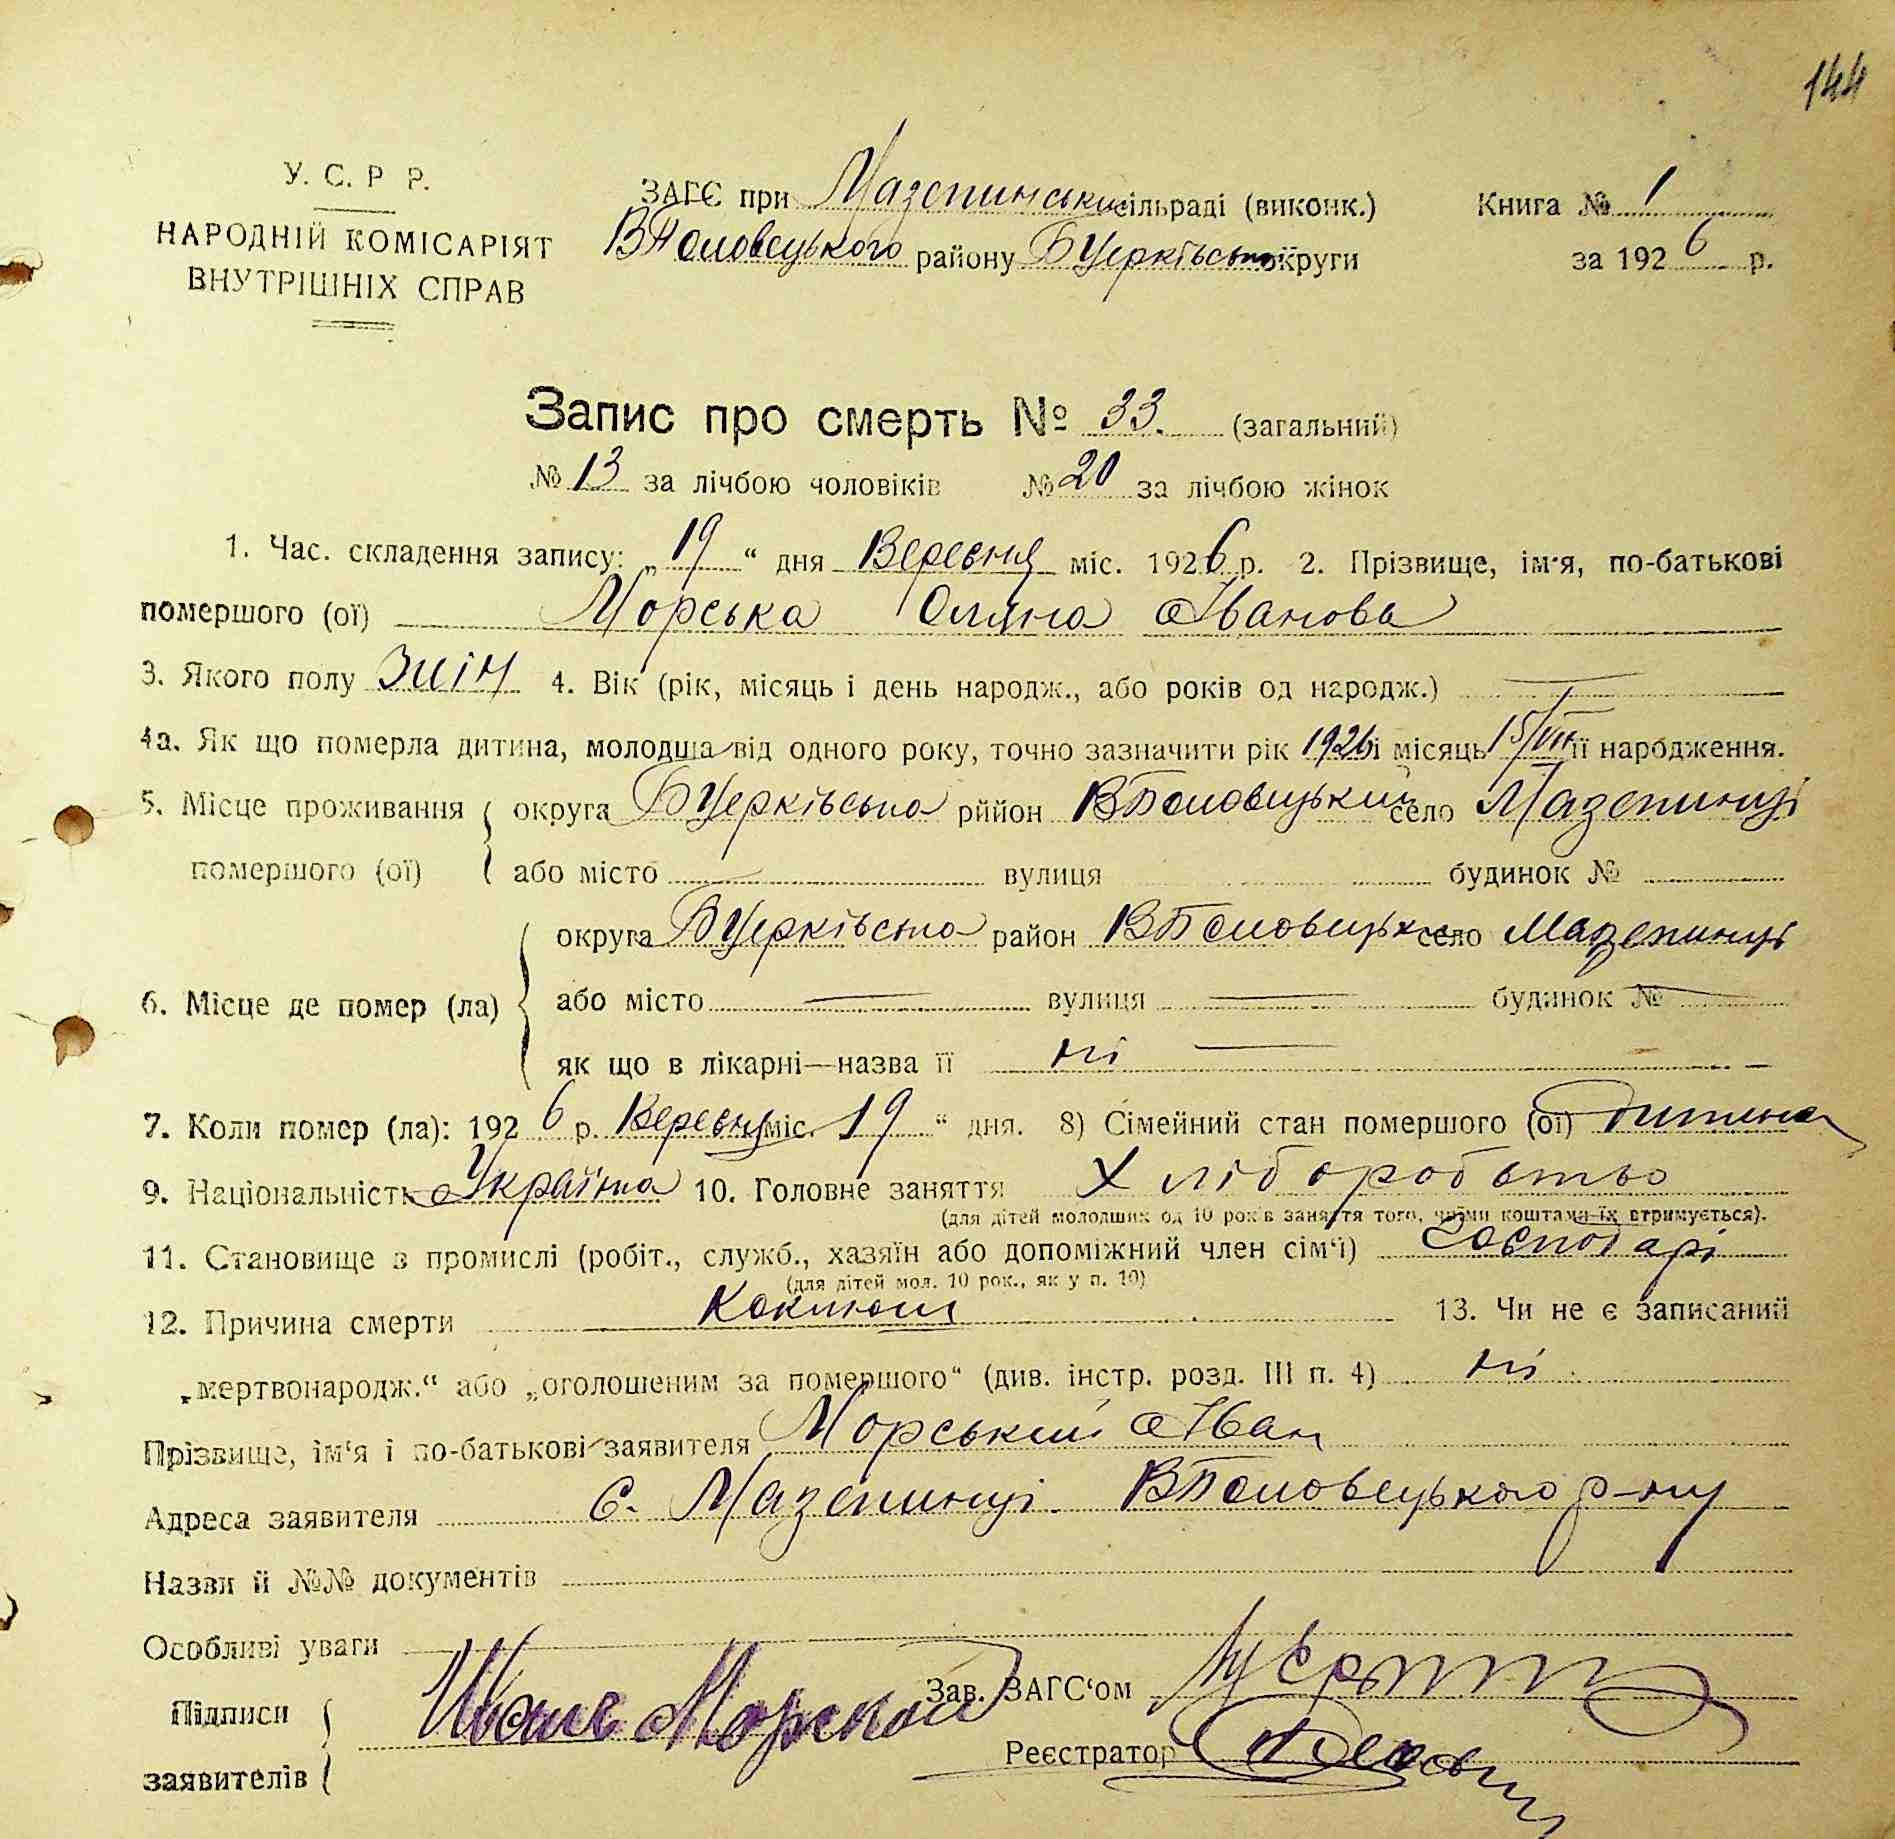 144
У. С. Р Р.
НАРОДНІЙ КОМІСАРІЯТ
ВНУТРІШНІХ СПРАВ
ЗАГС при Мазепинській сільраді (виконк.) Книга № 1
ВПоловецького району БЦерківської округи за 1926 р.
Запис про смерть № 33. (загальний)
№ 13 за лічбою чоловіків № 20 за лічбою жінок
1. Час. складення запису: „19“ дня Вересня міс. 1926 р. 2. Прізвище, ім'я, по-батькові
помершого (ої) Морська Оляна Іванова
3. Якого полу жін 4. Вік (рік, місяць і день народж., або років од народж.) —
4а. Як що померла дитина, молодша від одного року, точно зазначити рік 1926 і місяць 15/VIII її народження.
5. Місце проживання округа БЦерківська рййон ВПоловецький село Мазепинці
помершого (ої) або місто вулиця будинок №
округа БЦерківська район ВПоловецьк село Мазепинці
6. Місце де помер (ла) або місто — вулиця — будинок № —
як що в лікарні—назва її ні —
7. Коли помер (ла): 1926 р. Вересня міс. 19 “ дня. 8) Сімейний стан помершого (ої) дитина
9. Національність Українка 10. Головне заняття Хліборобство
(для дітей молодших од 10 років заняття того, чиїми коштами їх втримується).
11. Становище з промислі (робіт., служб., хазяїн або допоміжний член сім'ї) Господарі
(для дітей мол. 10 рок., як у п. 10)
12. Причина смерти Коклюш 13. Чи не є записаний
„мертвонародж.“ або „оголошеним за помершого“ (див. інстр. розд. III п. 4) ні
Прізвище, ім'я і по-батькові заявителя Морський Іван
Адреса заявителя с. Мазепинці ВПоловецького р-ну
Назви й №№ документів
Особливі уваги
Підписи Иван Морской Зав. ЗАГС'ом
заявителів Реєстратор